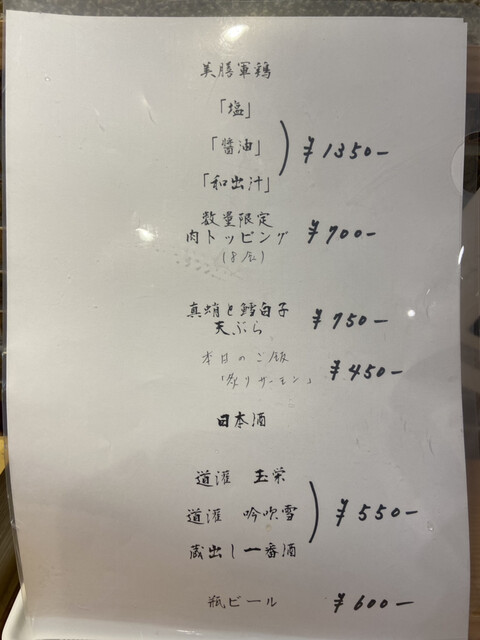 美膳軍鶏
「塩」
「醤油」
「和出汁」
¥1350-
数量限定
肉トッピング
¥700-
真蛸と鱈白子
天ぷら
¥750-
本日のご飯
「炙りサーモン」
¥450-
日本酒
道灌 玉栄
道灌 吟吹雪
蔵出し一番酒
¥550-
瓶ビール ¥600-